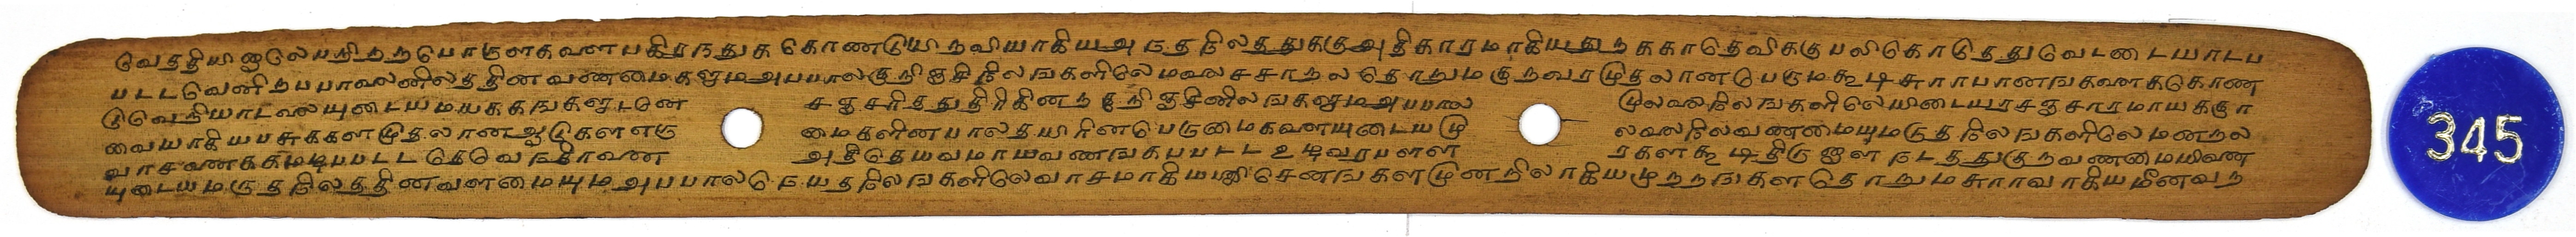 வெததியினுலெயநிறநறபொருளகவளபகிரநதுக கொணடுயிறவியாகியஅ நதநிலததுககுஅதிகாரமாகியகுறககாதெவிககுபலிகொடுதது வெடடையாடப
படடவெனிறபபாலைனிலததினவணமைகளுமஅபபாலகுறிஞசிநிலஙகளிலெமலைசசாறல தொறுமகுறவரமுதலானபெருமகூடிசுராபானஙகளைககொண
டுவெறியாடலையுடையமயககஙகளுடனெ சஞசரிததுதிரிகினறகுறிஞசினிலஙகளுமஅபபால முலலைநிலஙகளிலெயிடையரசஞசாரமாயககுரா
வையாகியபசுககளமுதலானஆடுகளஎரு மைகளினபாலதயிரினபெருமைகளையுடையமு லலைநிலவணமையுமருதநிலஙகளிலெமணறல
வாசவணககமடிபபடட தெவெநதிரவண அதிதெயவமாயவணஙகபபடட உழவரபளள ரகளகூடிதிருஞள நடததுகுறவணமையிவண
யுடையமருதநிலததினவளமையுமஅபபாலநெயதநிலஙகளிலெவாசமாகியபனிசெனஙகளமுனநிலாகியமுறறஙகளதொறுமசுராவாகியமீனவற
345